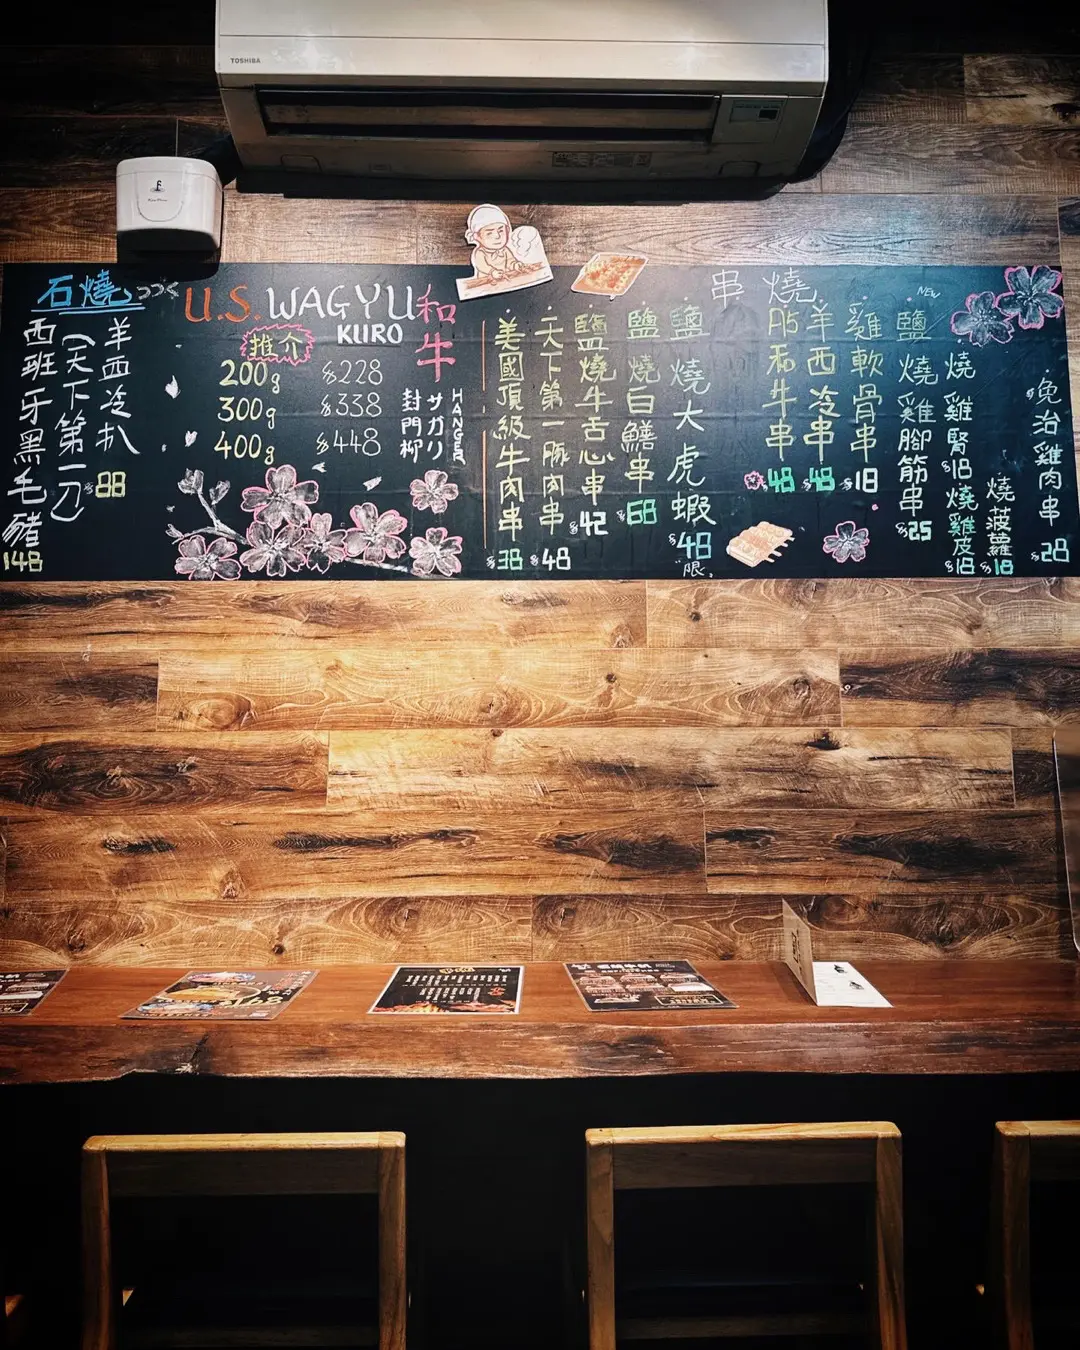 TOSHIBA
石燒
羊西冷扒
$88
(天下第一刀)
西班牙黑毛豬
148
U.S. WAGYU
KURO
和牛
推介
200g $228
300g $338
400g $448
HANGER
サガリ
封門柳
串燒
美國頂級牛肉串
$38
天下第一豚肉串
$48
鹽燒牛舌心串
$42
鹽燒白鱔串
$68
鹽燒大虎蝦
$48
"限"
A5和牛串
$48
羊西冷串
$48
雞軟骨串
$18
NEW
鹽燒雞腳筋串
$25
燒雞腎
$18
燒雞皮
$18
燒菠蘿
$18
免治雞肉串
$28